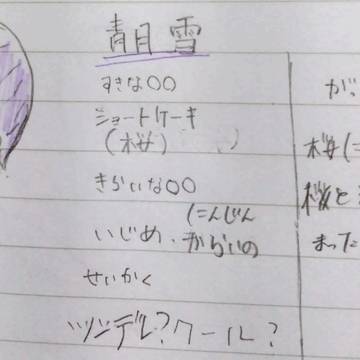 青月 雪
すきな○○
ショートケーキ
(桜)
きらいな○○
(にんじん
いじめ、からいの
せいかく
ツンデレ?クール?
が、
桜(
桜と
まった